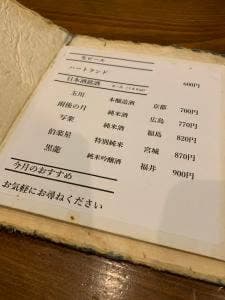 生ビール
ハートランド 600円
日本酒銘酒
玉川 本醸造酒 京都 700円
雨後の月 純米酒 広島 770円
写楽 純米酒 福島 820円
伯楽星 特別純米 宮城 870円
黒龍 純米吟醸酒 福井 900円
今月のおすすめ
お気軽にお尋ねください